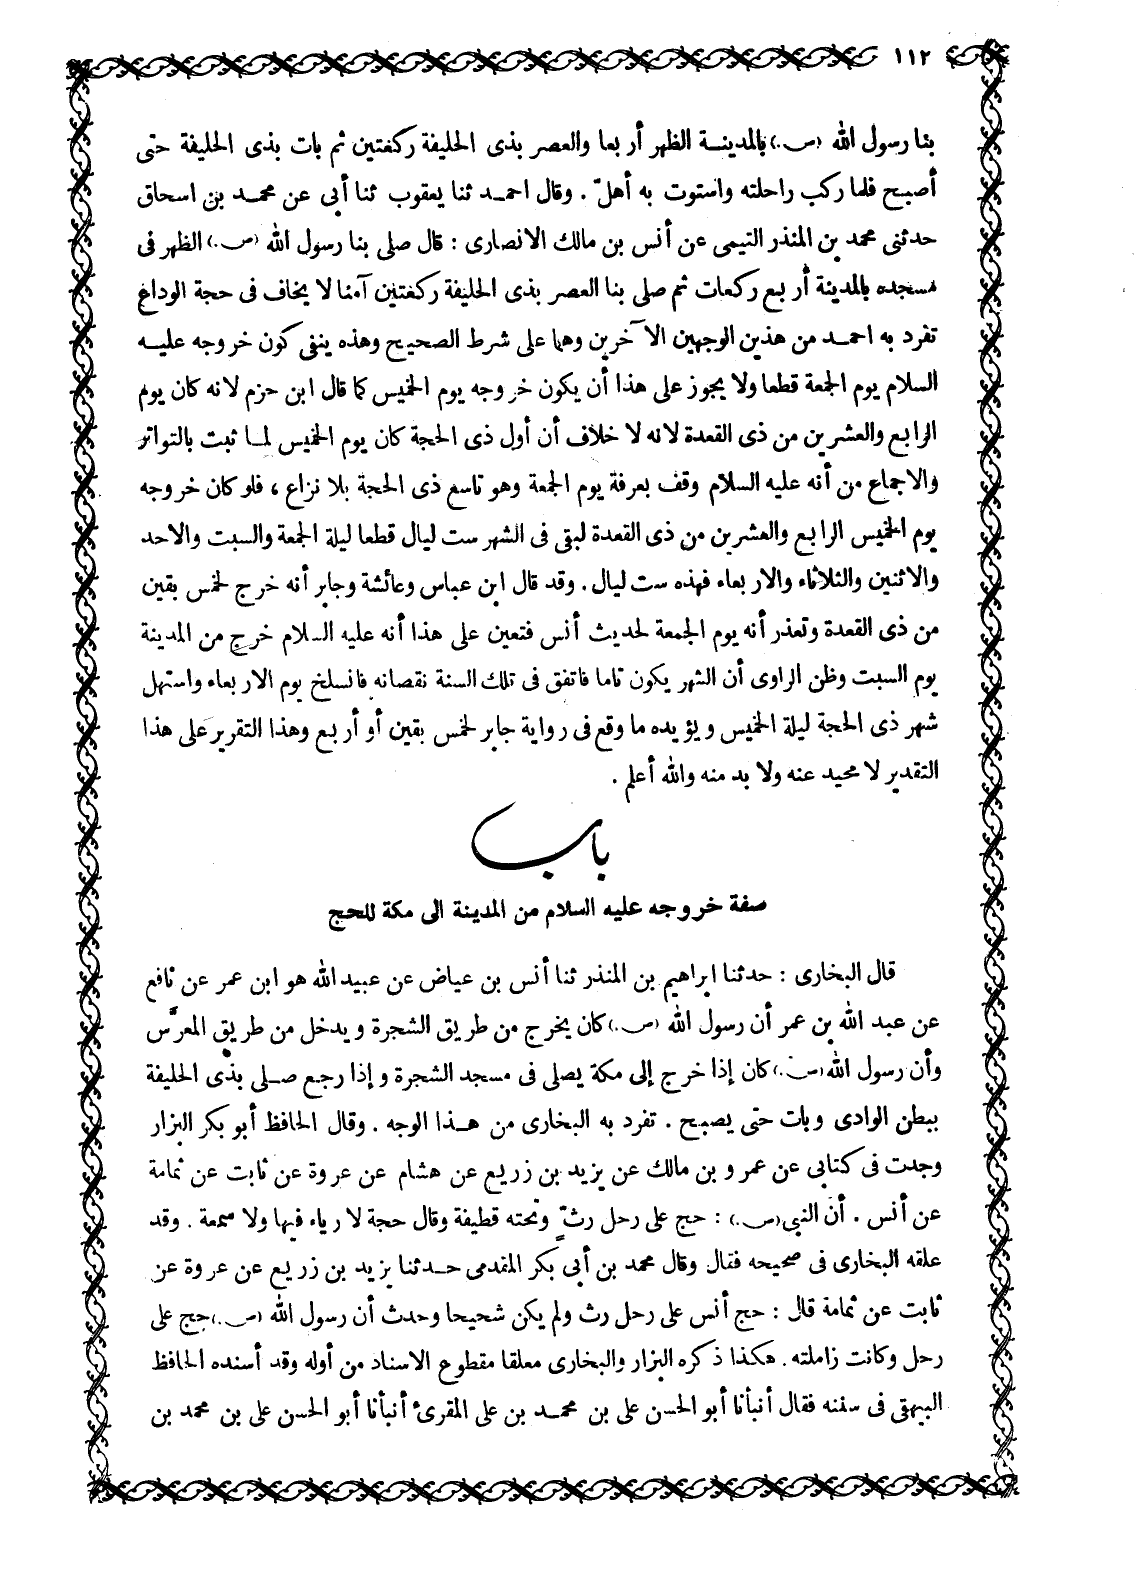 ١١٢
بنا رسول الله (ص.) بالمدينــة الظهر أربعا والعصر بذى الحليفة ركعتين ثم بات بذى الحليفة حتى
أصبح فلما ركب راحلته واستوت به أهلّ . وقال احمـد ثنا يعقوب ثنا أبى عن محمـد بن اسحاق
حدثنى محمد بن المنذر التيمى عن أنس بن مالك الانصارى : قال صلى بنا رسول الله (ص.) الظهر فى
مسجده بالمدينة أربع ركعات ثم صلى بنا العصر بذى الحليفة ركعتين آمنا لا يخاف فى حجة الوداع
تفرد به احمـد من هذين الوجهين الآخرين وهما على شرط الصحيح وهذه ينفى كون خروجه عليـه
السلام يوم الجمعة قطعا ولا يجوز على هذا أن يكون خروجه يوم الخميس كما قال ابن حزم لانه كان يوم
الرابع والعشرين من ذى القعدة لانه لا خلاف أن أول ذى الحجة كان يوم الخميس لمـا ثبت بالتواتر
والاجماع من أنه عليه السلام وقف بعرفة يوم الجمعة وهو تاسع ذى الحجة بلا نزاع ، فلو كان خروجه
يوم الخميس الرابع والعشرين من ذى القعدة لبقى فى الشهر ست ليال قطعا ليلة الجمعة والسبت والاحد
والاثنين والثلاثاء والاربعاء فهذه ست ليال . وقد قال ابن عباس وعائشة وجابر أنه خرج لخمس بقين
من ذى القعدة وتعذر أنه يوم الجمعة لحديث أنس فتعين على هذا أنه عليه السلام خرج من المدينة
يوم السبت وظن الراوى أن الشهر يكون تاما فاتفق فى تلك السنة نقصانه فانسلخ يوم الاربعاء واستهل
شهر ذى الحجة ليلة الخميس ويؤيده ما وقع فى رواية جابر لخمس بقين أو أربع وهذا التقرير على هذا
التقدير لا محيد عنه ولا بد منه والله أعلم .
باب
صفة خروجه عليه السلام من المدينة الى مكة للحج
قال البخارى : حدثنا ابراهيم بن المنذر ثنا أنس بن عياض عن عبيد الله هو ابن عمر عن نافع
عن عبد الله بن عمر أن رسول الله (ص.) كان يخرج من طريق الشجرة ويدخل من طريق المعرَّس
وأن رسول الله (ص.) كان إذا خرج إلى مكة يصلى فى مسجد الشجرة وإذا رجع صـلى بذى الحليفة
ببطن الوادى وبات حتى يصبح . تفرد به البخارى من هـذا الوجه . وقال الحافظ أبو بكر البزار
وجدت فى كتابى عن عمرو بن مالك عن يزيد بن زريع عن هشام عن عروة عن ثابت عن ثمامة
عن أنس . أن النبى (ص.) : حج على رحل رثٍّ وتحته قطيفة وقال حجة لا رياء فيها ولا سمعة . وقد
علقه البخارى فى صحيحه فقال وقال محمد بن أبى بكر المقدمى حـدثنا يزيد بن زريع عن عروة عن
ثابت عن ثمامة قال : حج أنس على رحل رث ولم يكن شحيحا وحدث أن رسول الله (ص.) حج على
رحل وكانت زاملته . هكذا ذكره البزار والبخارى معلقا مقطوع الاسناد من أوله وقد أسنده الحافظ
البيهقى فى سننه فقال أنبأنا أبو الحسن على بن محمـد بن على المقرئ أنبأنا أبو الحسن على بن محمد بن